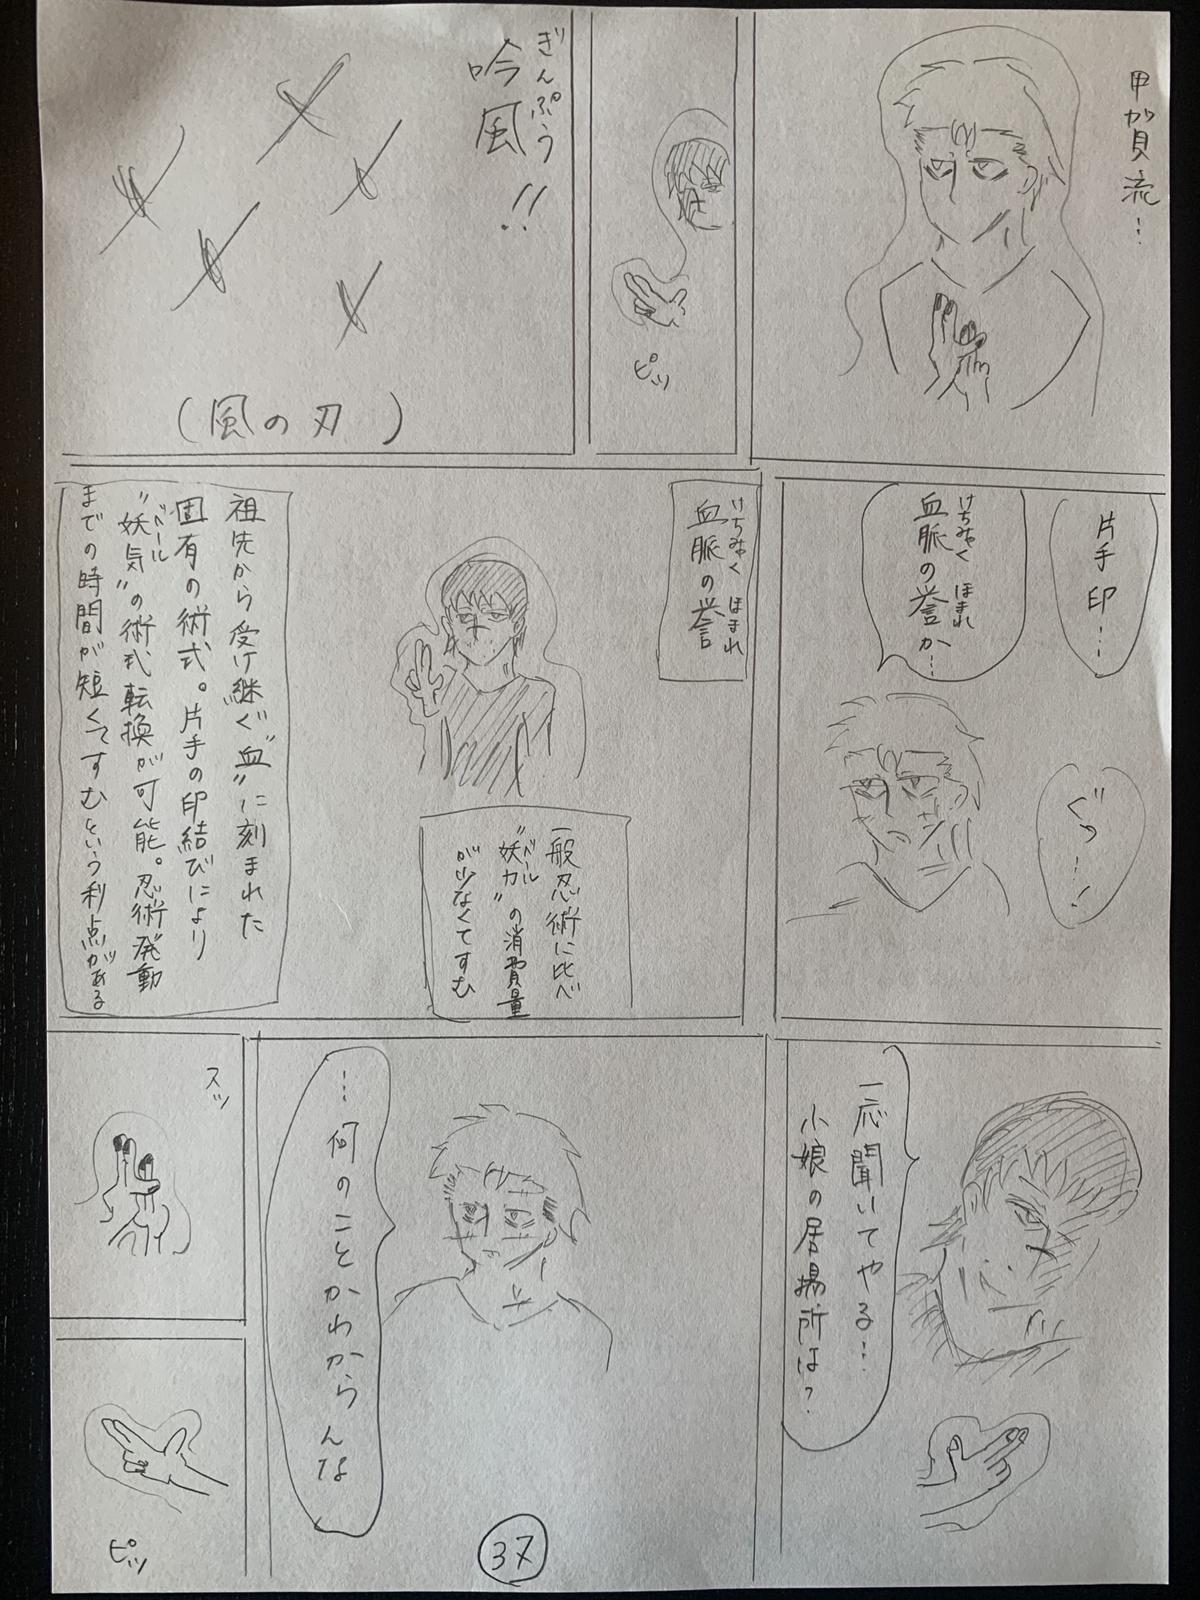 甲賀流…
ピッ
ぎんぷう
吟風!!
(風の刃)
片手印…
けちみゃく ほまれ
血脈の誉か…
ぐっ…!
けちみゃく ほまれ
血脈の誉
一般忍術に比べ
ベール
"妖力"の消費量
が少なくてすむ
祖先から受け継ぐ"血"に刻まれた
固有の術式。片手の印結びにより
ベール
"妖気"の術式転換が可能。忍術発動
までの時間が短くてすむという利点がある
一応聞いてやる…
小娘の居場所は?
…何のことかわからんな
スッ
ピッ
37